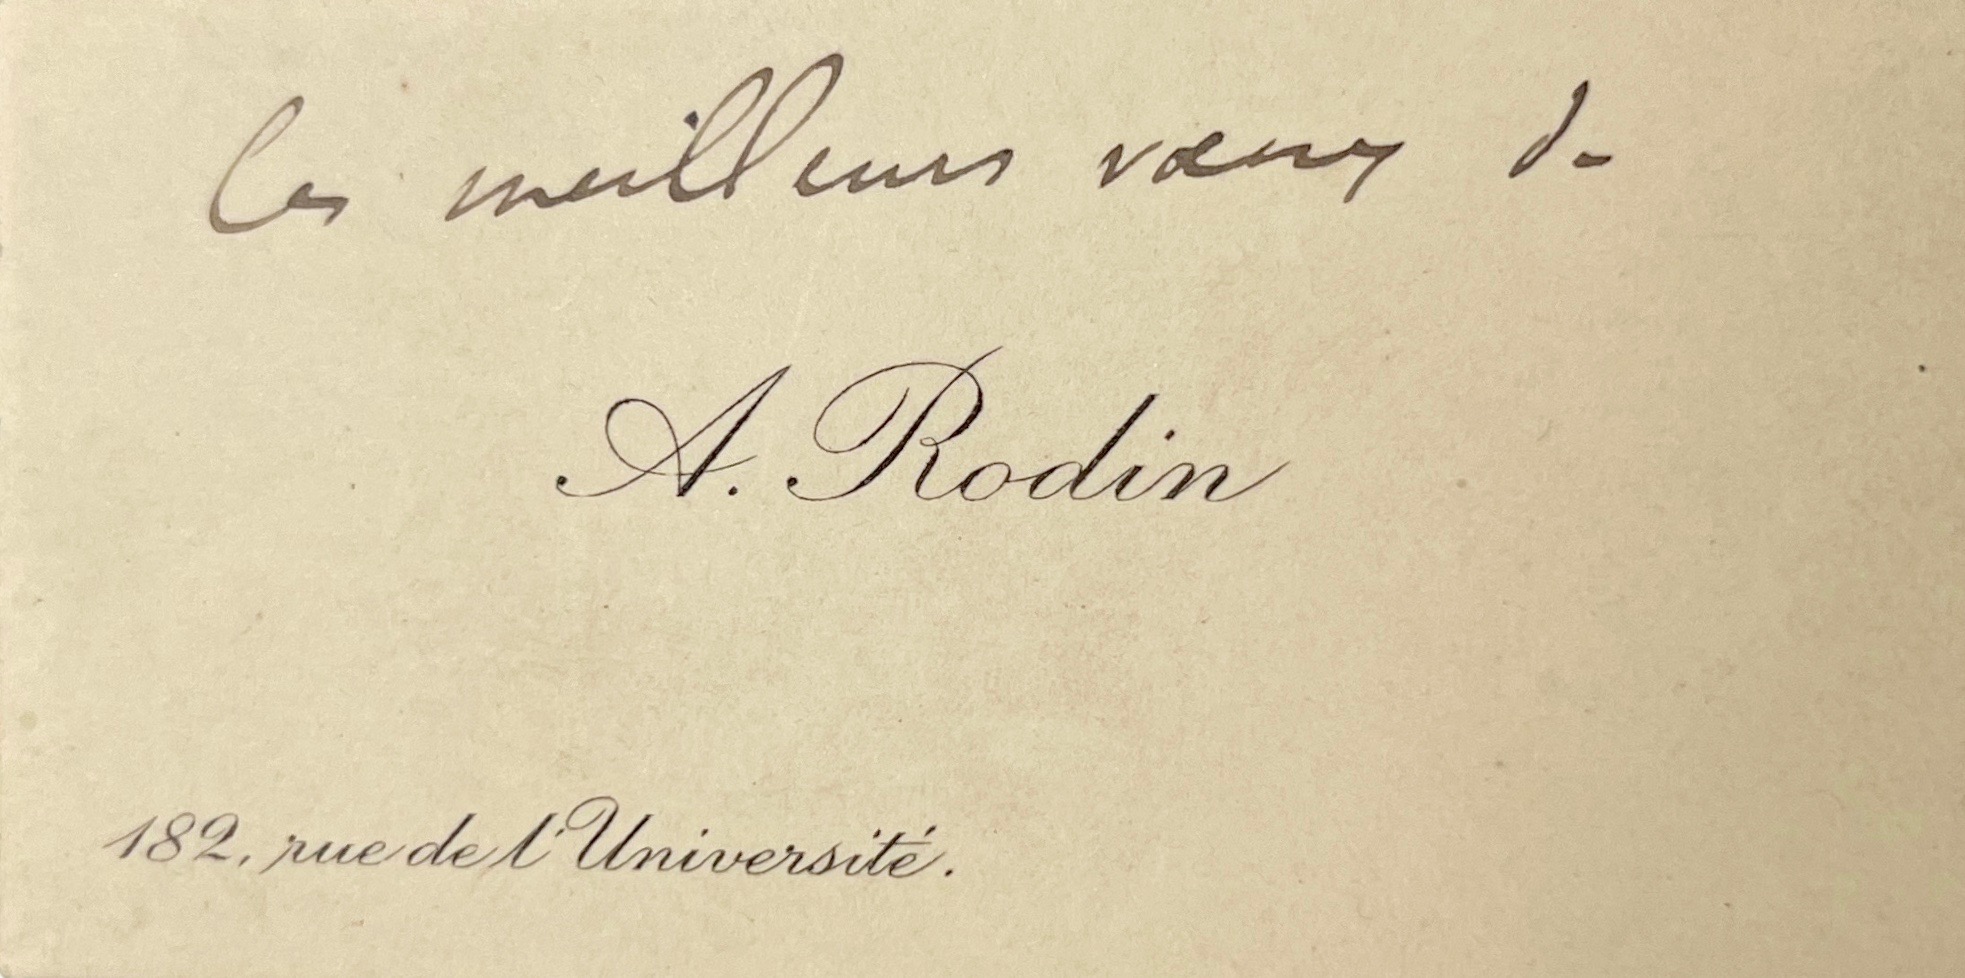 les meilleurs vœux de
A. Rodin
182, rue de l'Université.